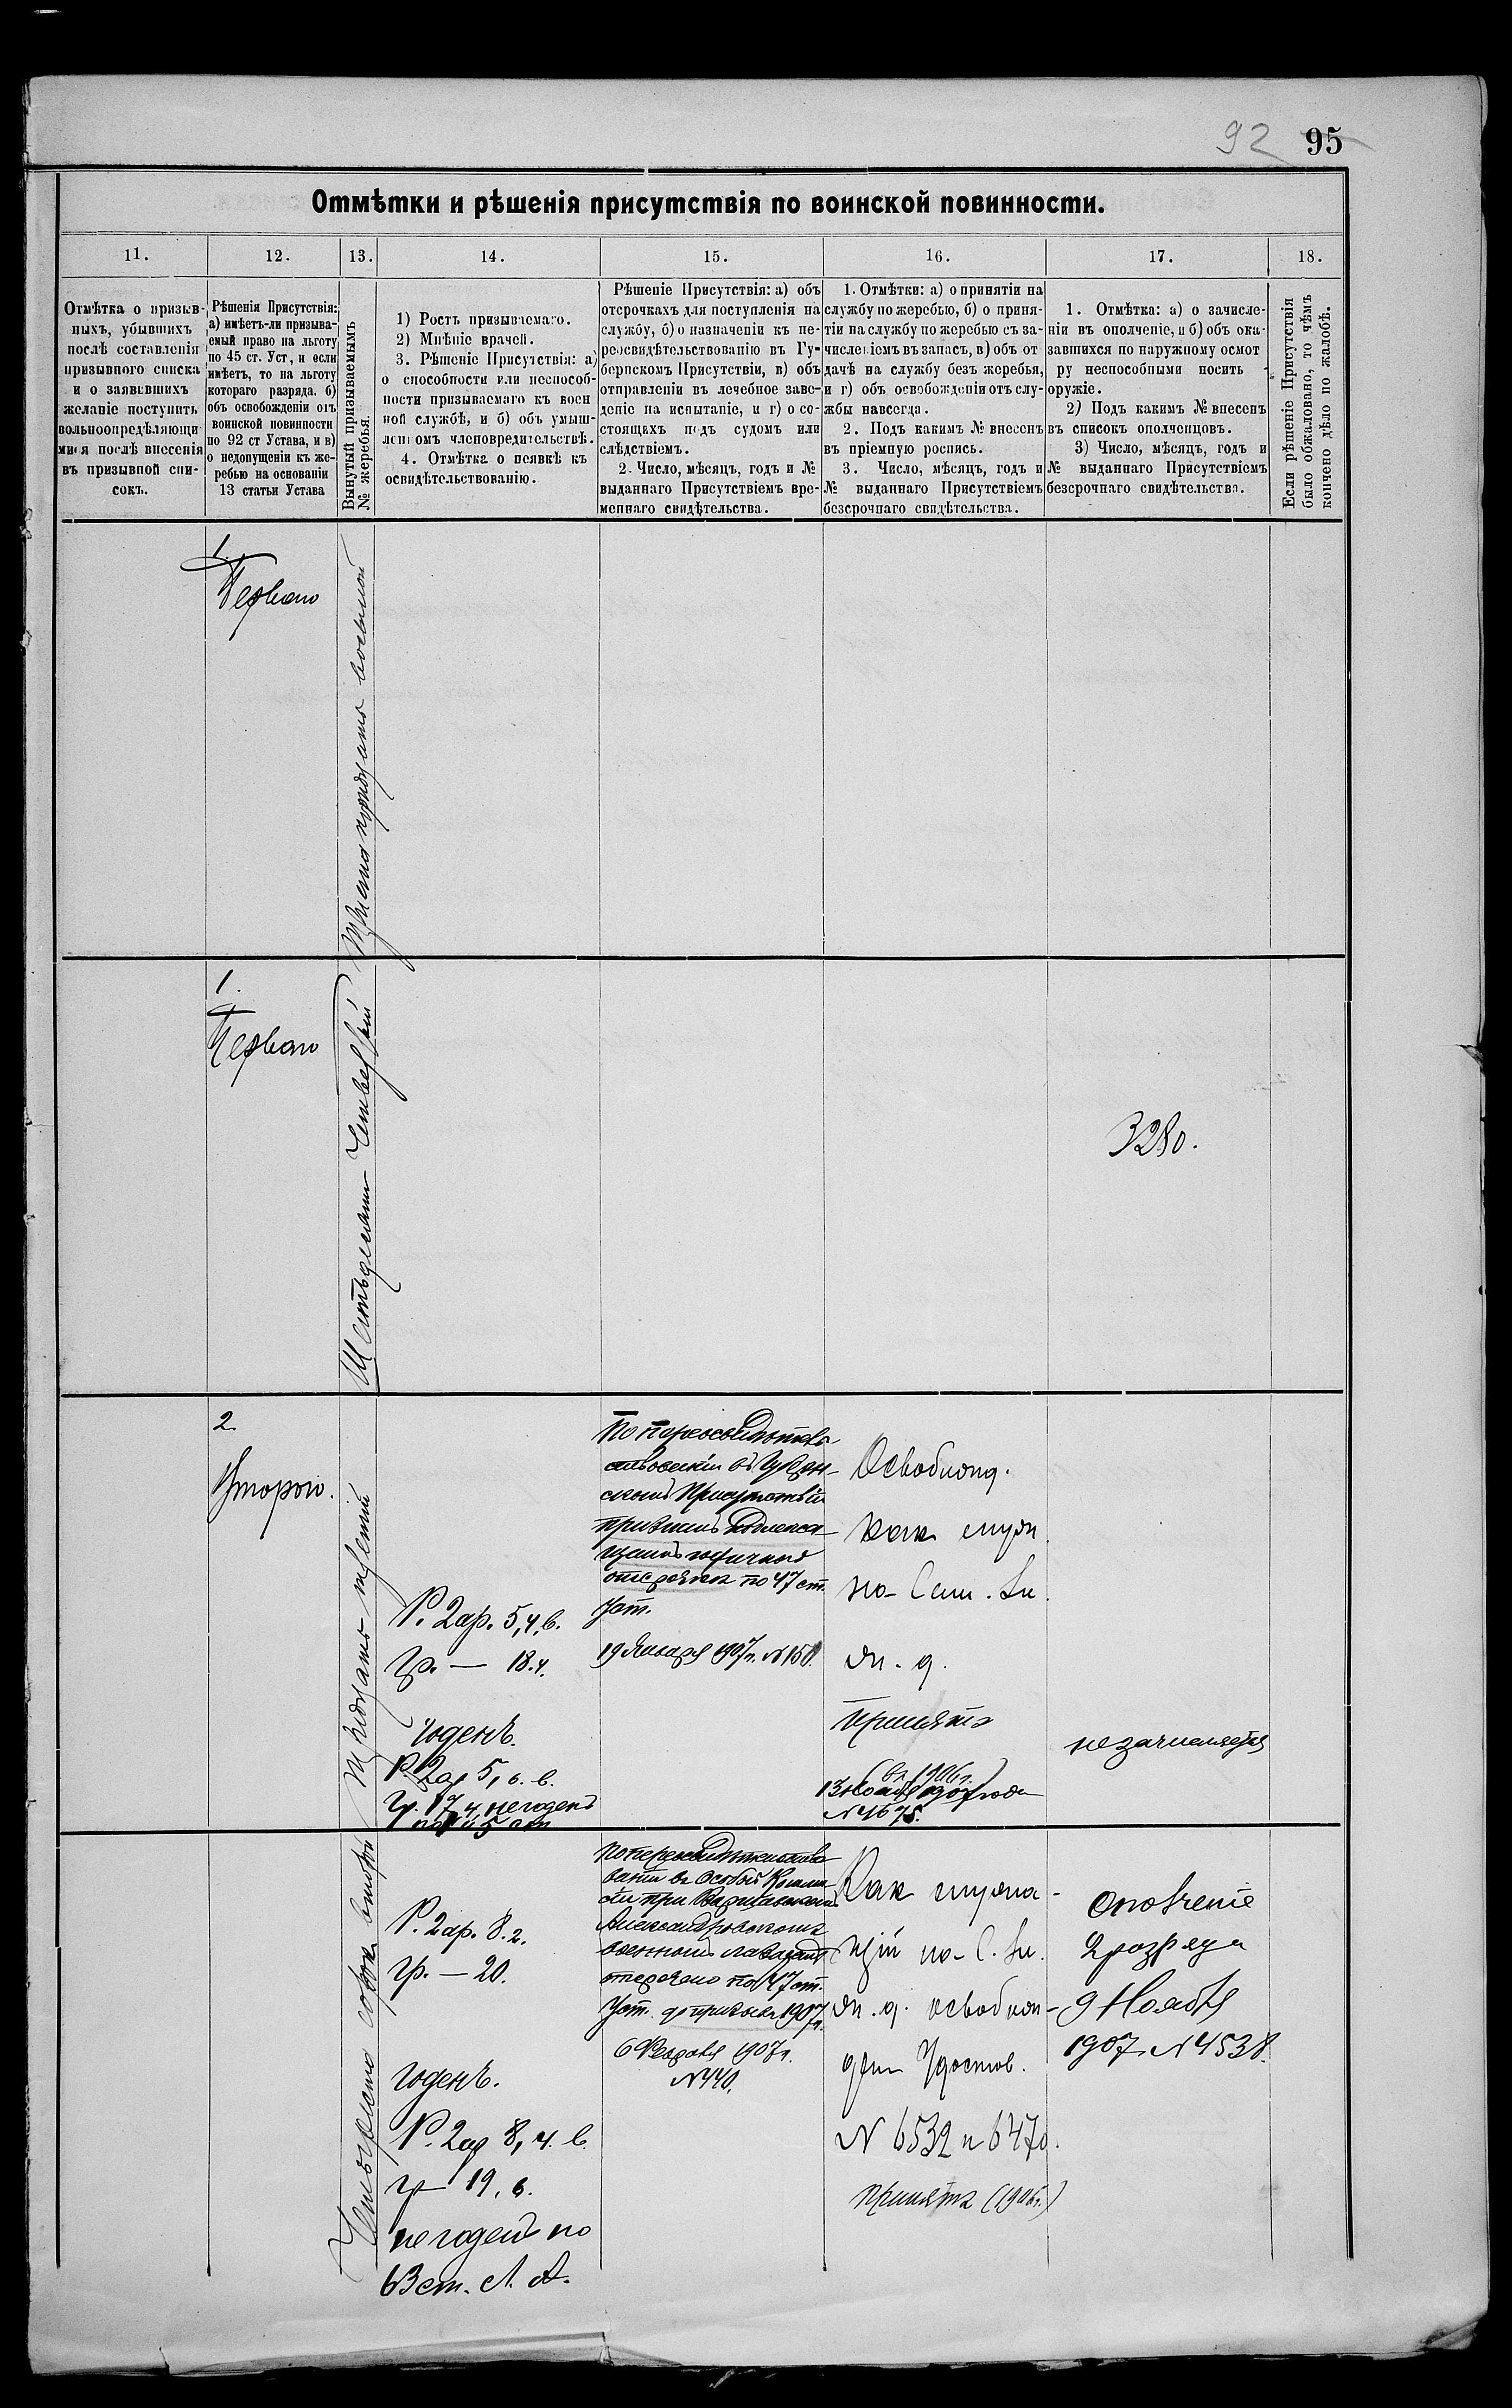 92 95
Отмѣтки и рѣшенія присутствія по воинской повинности.
11. 12. 13. 14. 15. 16. 17. 18.
Отмѣтка о призыв-
ныхъ, убывшихъ
послѣ составленія
призывного списка
и о заявившихъ
желаніе поступить
вольноопредѣляющи
мися послѣ внесенія
въ призывной спи-
сокъ.
Рѣшенія Присутствія:
а) имѣетъ-ли призыва-
емый право на льготу
по 45 ст. Уст, и если
имѣетъ, то на льготу
котораго разряда. б)
объ освобожденіи отъ
воинской повинности
по 92 ст Устава, и в)
о недопущеніи къ же-
ребью на основаніи
13 статьи Устава
Вынутый призываемымъ
№ жеребья.
1) Ростъ призываемаго.
2) Мнѣніе врачей.
3. Рѣшеніе Присутствія: а)
о способности или неспособ-
ности призываемаго къ воен
ной службѣ, и б) объ умыш-
леномъ членовредительствѣ.
4. Отмѣтка о неявкѣ къ
освидѣтельствованію.
Рѣшеніе Присутствія: а) объ
отсрочкахъ для поступленія на
службу, б) о назначеніи къ пе-
реосвидѣтельствованію въ Гу-
бернскомъ Присутствіи, в) объ
отправленіи въ лечебное заве-
деніе на испытаніе, и г) о со-
стоящахъ подъ судомъ или
слѣдствіемъ.
2. Число, мѣсяцъ, годъ и №
выданнаго Присутствіемъ вре-
меннаго свидѣтельства.
1. Отмѣтки: а) о принятіи на
службу по жеребью, б) о приня-
тіи на службу по жеребью съ за-
численіемъ въ запасъ, в) объ от
дачѣ на службу безъ жеребья,
и г) объ освобожденіи отъ слу-
жбы навсегда.
2. Подъ какимъ № внесенъ
въ пріемную роспись.
3. Число, мѣсяцъ, годъ и
№ выданнаго Присутствіемъ
безсрочнаго свидѣтельства.
1. Отмѣтка: а) о зачисле-
ніи въ ополченіе, и б) объ ока-
завшихся по наружному осмот
ру неспособными носить
оружіе.
2) Подъ какимъ № внесенъ
въ списокъ ополченцовъ.
3) Число, мѣсяцъ, годъ и
№ выданнаго Присутствіемъ
безсрочнаго свидѣтельства.
Если рѣшеніе Присутствія
было обжаловано, то чѣмъ
кончено дѣло по жалобѣ.
1.
Перваго
Триста тридцать восьмой
1.
Перваго
Шестьдесят Четвертый
3280.
2
Второго.
Тридцать третий
Р. 2ар. 5,4,в.
Гр. — 18.4.
годенъ.
Р. 2ар 5, 6. в.
Гр. 17 4, негоденъ
По переосвидѣтель-
ствованіи въ Губерн-
скомъ Присутствіи
признанъ подлежа-
щимъ годичной
отсрочкѣ по 47 ст.
Уст.
19 Января 1907 г. № 150.
Освобожд.
как служ.
на
ж. д.
Принятъ
(въ 1906 г.)
13 Ноября 1907 года
№ 4675.
не зачисляется
Четыреста сорок второй
Р. 2ар. 8.2.
Гр. — 20.
годенъ.
Р. 2ар 8, 4. в.
гр 19, 6.
негоденъ по
63 ст. Л. А.
По переосвидѣтельство-
ваніи въ Особой Комми-
сіи при
Александровскомъ
военномъ лазаретѣ
отсрочено по 47 ст.
Уст. до призыва 1907 г.
6 Февраля 1907 г.
№ 440.
Как служа-
щій на
ж. д. освобож-
ден Удостов.
№ 6532 и 6470.
Принятъ (1906 г.)
ополченіе
2 разряда
9 Ноября
1907 № 4538.